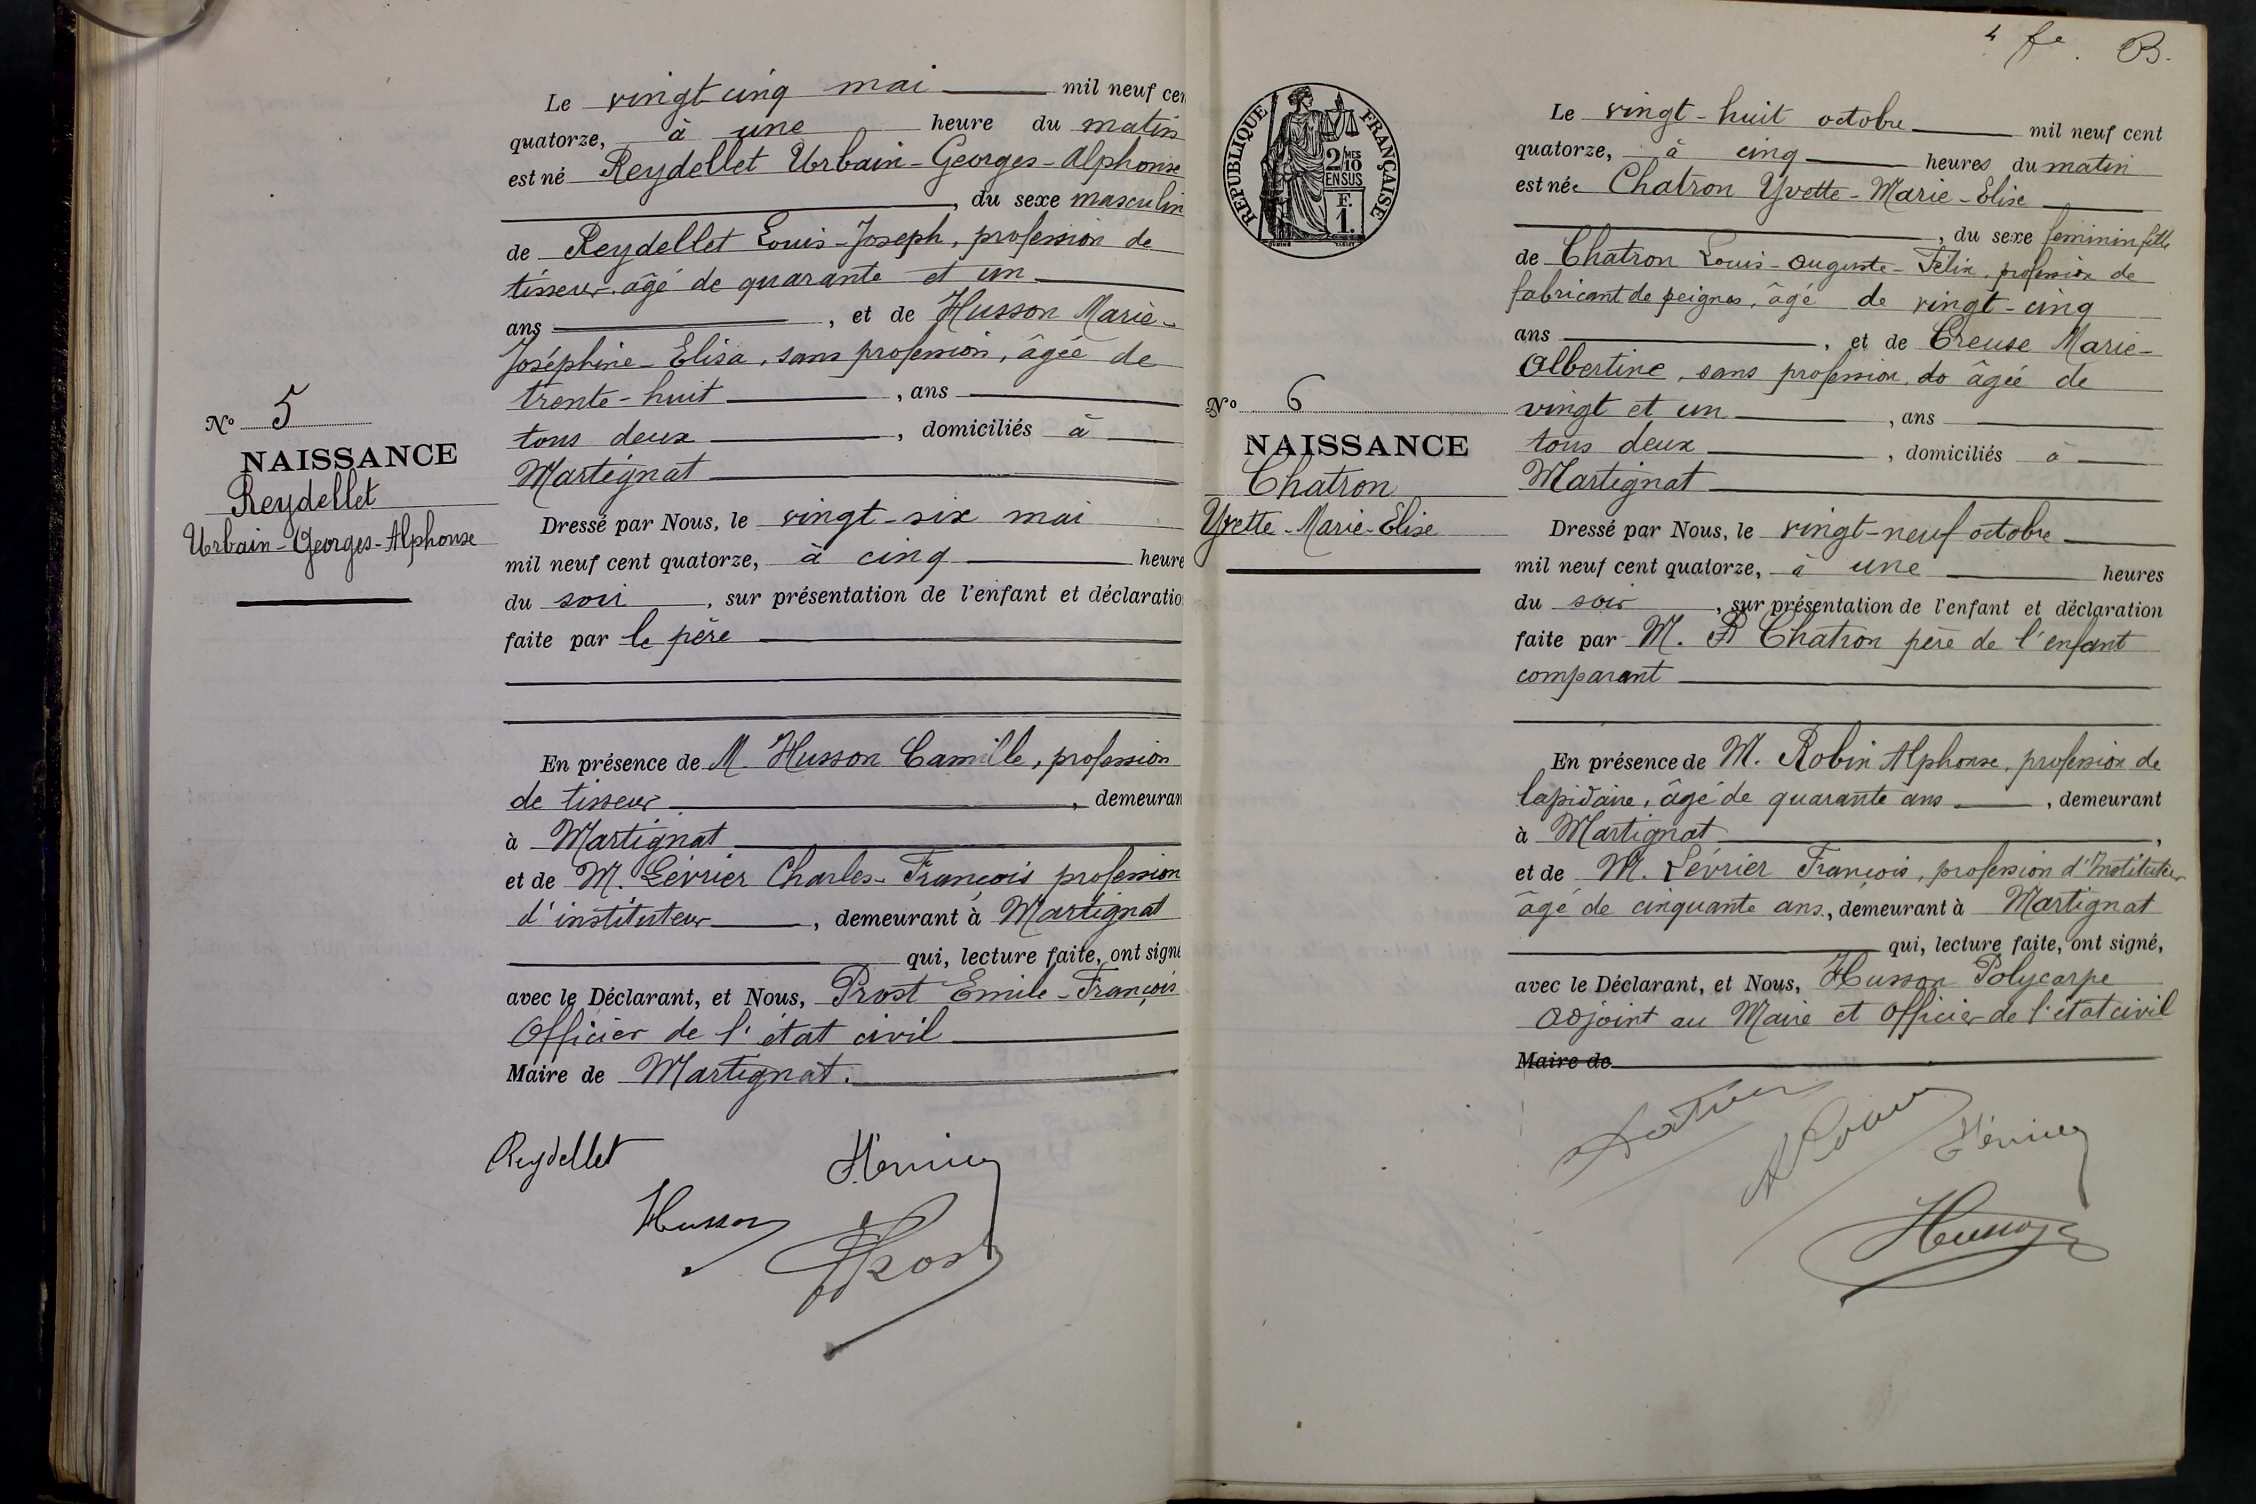 Le vingt cinq mai mil neuf cen
quatorze, à une heure du matin
est né Reydellet Urbain-Georges-Alphonse
, du sexe masculin
de Reydellet Louis-Joseph, profession de
tisseur, âgé de quarante et un
ans , et de Husson Marie-
Joséphine-Elisa, sans profession, âgée de
trente-huit , ans
tous deux , domiciliés à
Martignat
Nº 5
NAISSANCE
Reydellet
Urbain-Georges-Alphonse
Dressé par Nous, le vingt-six mai
mil neuf cent quatorze, à cinq heure
du soir , sur présentation de l'enfant et déclaratio
faite par le père
En présence de M. Husson Camille, profession
de tisseur , demeuran
à Martignat
et de M. Lévrier Charles-François profession
d'instituteur , demeurant à Martignat
qui, lecture faite, ont signé
avec le Déclarant, et Nous, Prost Emile-François
Officier de l'état civil
Maire de Martignat.
Reydellet
Husson
Prost
4 fe. B.
RÉPUBLIQUE FRANÇAISE
2/10 MES
EN SUS
F.
1.
Le vingt-huit octobre mil neuf cent
quatorze, à cinq heures du matin
est née Chatron Yvette-Marie-Elise
, du sexe feminin fille
de Chatron Louis-Auguste-Félix, profession de
fabricant de peignes, âgé de vingt-cinq
ans , et de Creuse Marie-
Albertine, sans profession, do âgée de
vingt et un , ans
tous deux , domiciliés à
Martignat
Nº 6
NAISSANCE
Chatron
Yvette-Marie-Elise
Dressé par Nous, le vingt-neuf octobre
mil neuf cent quatorze, à une heures
du soir , sur présentation de l'enfant et déclaration
faite par M. Chatron père de l'enfant
comparant
En présence de M. Robin Alphonse, profession de
lapidaire, âgé de quarante ans , demeurant
à Martignat ,
et de M. Lévrier François, profession d'Instituteur
âgé de cinquante ans, demeurant à Martignat
qui, lecture faite, ont signé,
avec le Déclarant, et Nous, Husson Polycarpe
Adjoint au Maire et Officier de l'état civil
Maire de
Husson